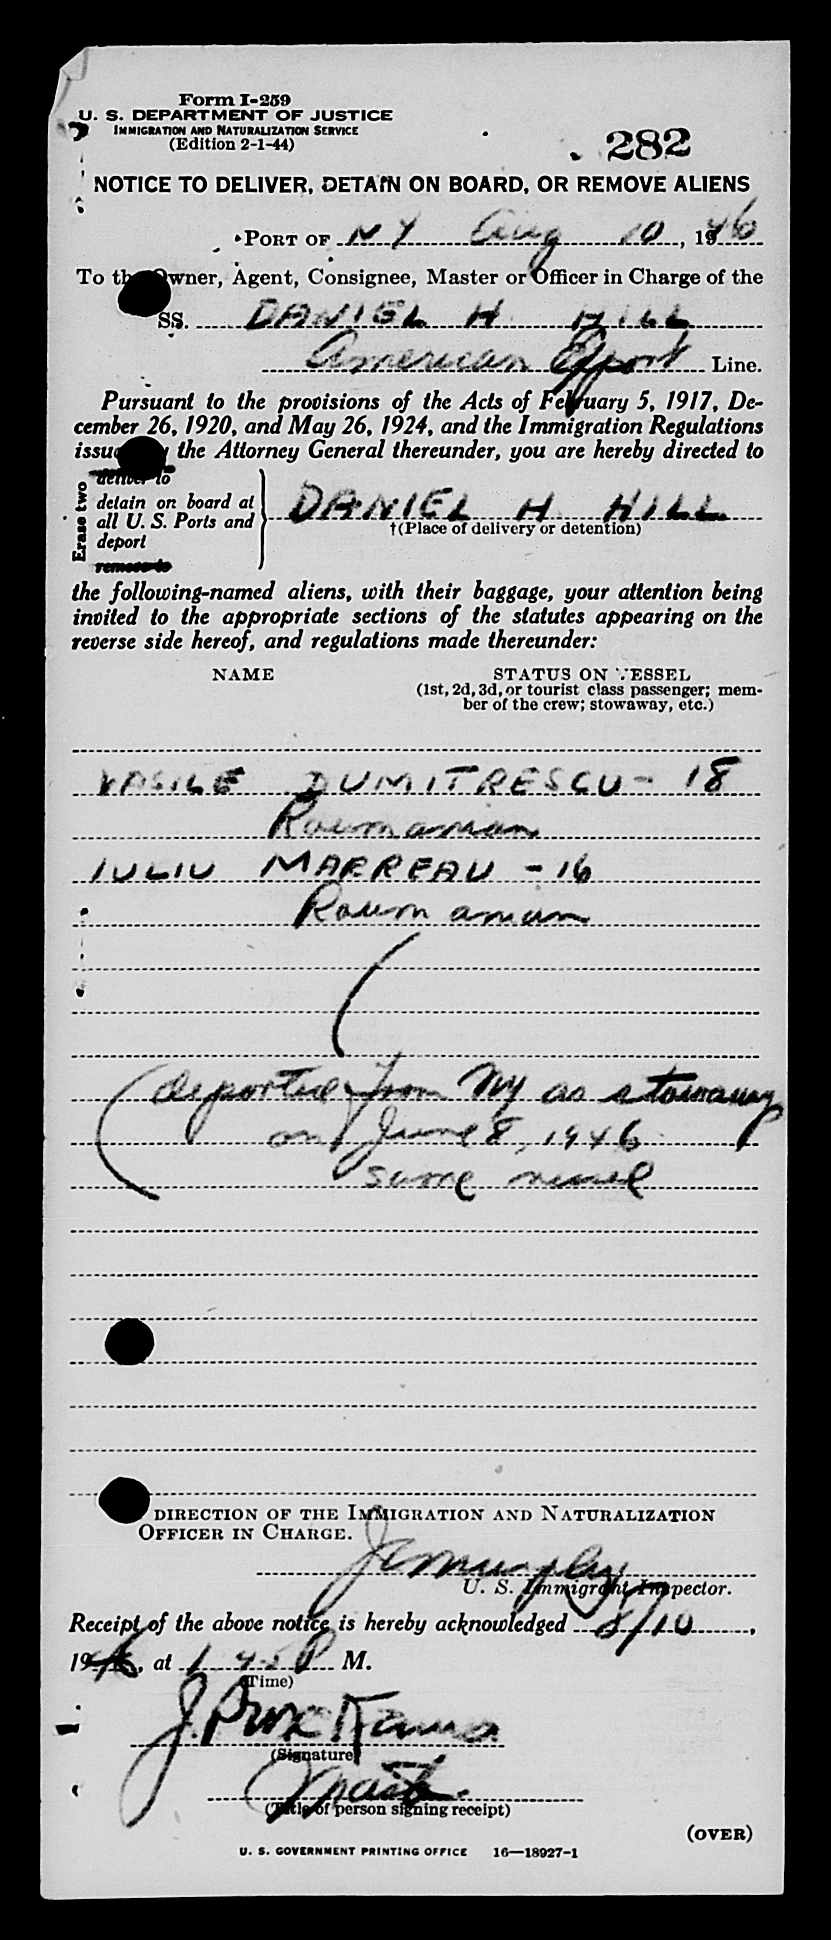 Form I-259
U. S. DEPARTMENT OF JUSTICE
IMMIGRATION AND NATURALIZATION SERVICE
(Edition 2-1-44)
282
NOTICE TO DELIVER, DETAIN ON BOARD, OR REMOVE ALIENS
PORT OF NY Aug 10, 1946
To the Owner, Agent, Consignee, Master or Officer in Charge of the
SS. DANIEL H HILL
American Export Line.
Pursuant to the provisions of the Acts of February 5, 1917, De-
cember 26, 1920, and May 26, 1924, and the Immigration Regulations
issued by the Attorney General thereunder, you are hereby directed to
Erase two
deliver to
detain on board at
all U. S. Ports and
deport
remove to
DANIEL H HILL
†(Place of delivery or detention)
the following-named aliens, with their baggage, your attention being
invited to the appropriate sections of the statutes appearing on the
reverse side hereof, and regulations made thereunder:
NAME
STATUS ON VESSEL
(1st, 2d, 3d, or tourist class passenger; mem-
ber of the crew; stowaway, etc.)
VASILE DUMITRESCU - 18
Roumanian
IULIU MARREAU - 16
Roumanian
(deported from NY as stowaway
on June 8, 1946
same vessel
DIRECTION OF THE IMMIGRATION AND NATURALIZATION
OFFICER IN CHARGE.
U. S. Immigrant Inspector.
Receipt of the above notice is hereby acknowledged 8/10,
1946, at 1 45 P M.
(Time)
(Signature)
(Title of person signing receipt)
(OVER)
U. S. GOVERNMENT PRINTING OFFICE 16—18927-1